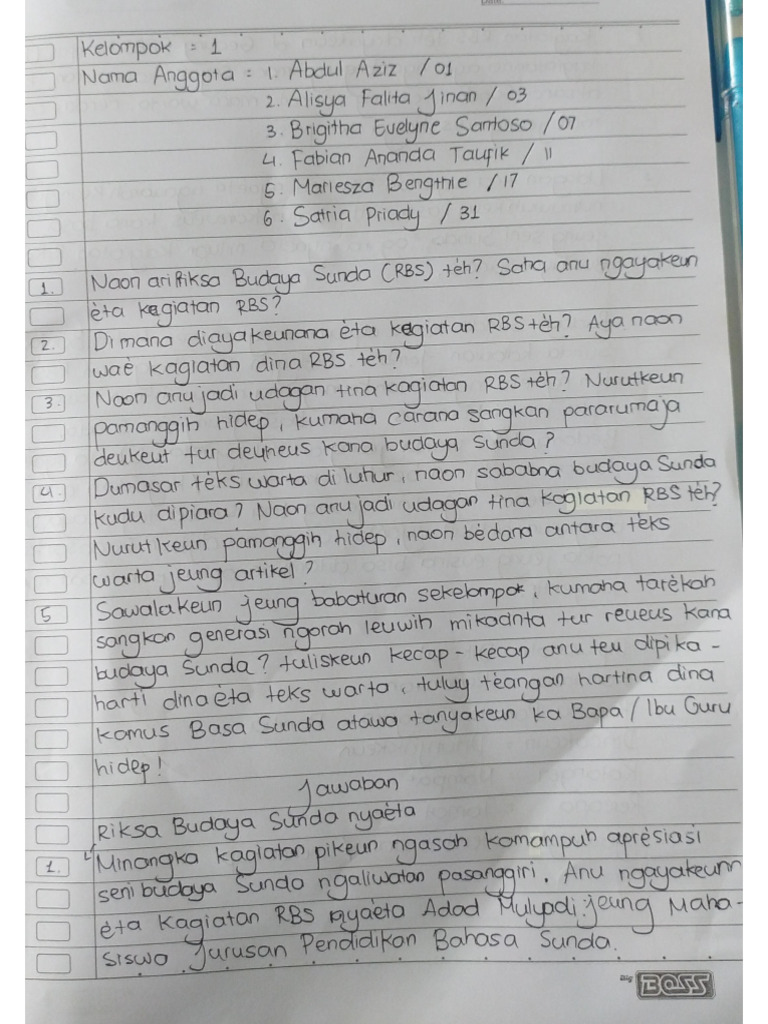 Kelompok : 1
Nama Anggota : 1. Abdul Aziz / 01
2. Alisya Falita Jinan / 03
3. Brigitha Evelyne Santoso / 07
4. Fabian Ananda Taufik / 11
5. Mariesza Bengthie / 17
6. Satria Priady / 31
1. Naon ari Riksa Budaya Sunda (RBS) tèh? Saha anu ngayakeun
èta kegiatan RBS?
2. Di mana diayakeunana èta kegiatan RBS tèh? Aya naon
waè kagiatan dina RBS tèh?
3. Naon anu jadi udagan tina kagiatan RBS tèh? Nurutkeun
pamanggih hidep, kumaha carana sangkan pararumaja
deukeut tur deuheus kana budaya sunda?
4. Dumasar tèks warta di luhur, naon sababna budaya Sunda
kudu dipiara? Naon anu jadi udagan tina kagiatan RBS tèh?
Nurutkeun pamanggih hidep, naon bèdana antara tèks
warta jeung artikel?
5 Sawalakeun jeung babaturan sekelompok, kumaha tarèkah
sangkan generasi ngorah leuwih mikacinta tur reueus kana
budaya Sunda? tuliskeun kecap - kecap anu teu dipika -
harti dina èta teks warta, tuluy tèangan hartina dina
kamus Basa Sunda atawa tanyakeun ka Bapa / Ibu Guru
hidep!
Jawaban
Riksa Budaya Sunda nyaèta
1. Minangka kagiatan pikeun ngasah kamampuh aprèsiasi
seni budaya Sunda ngaliwatan pasanggiri. Anu ngayakeun
èta Kagiatan RBS nyaèta Adad Mulyadi jeung Maha -
siswa Jurusan Pendidikan Bahasa Sunda.
BOSS